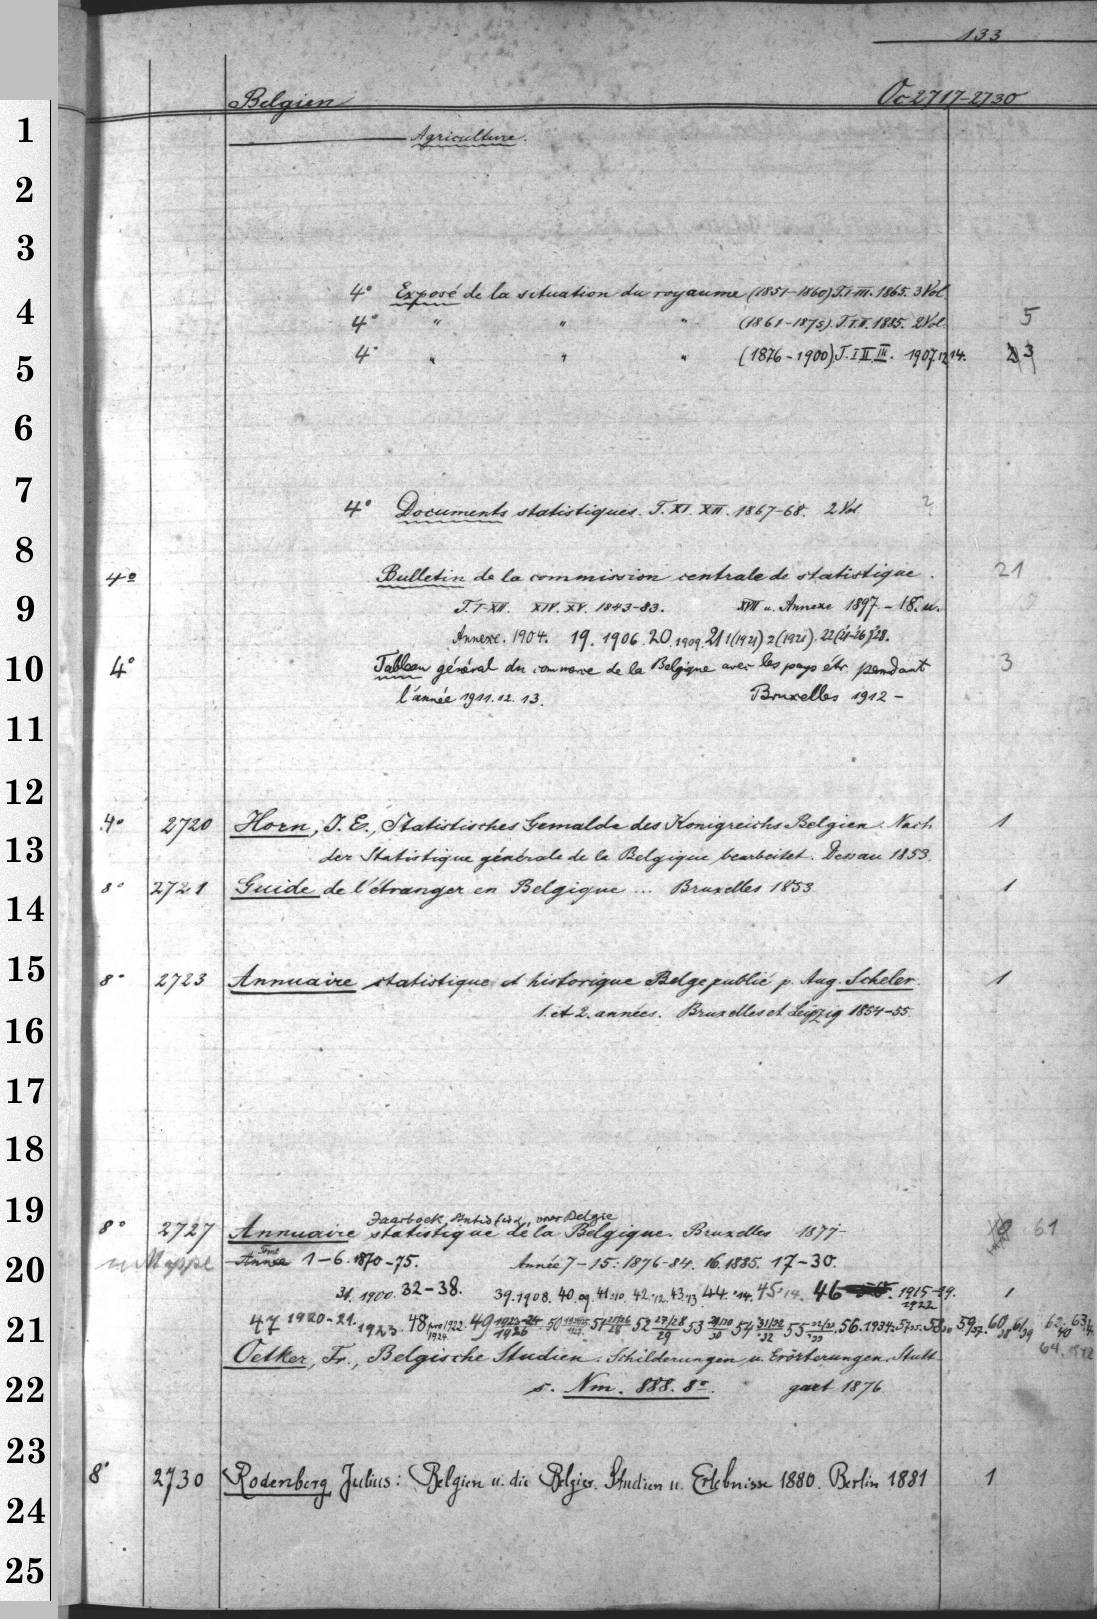 133
Belgien Oc 2717-2730
Agriculture.
4° Exposé de la situation du royaume (1851-1860) T. I-III. 1865. 3 Vol
4° " " " (1861-1875). T. I. II. 1885. 2 Vol. 5
4° " " " (1876-1900). T. I II III. 1907.12.14. 3
4° Documents statistiques. T. XI. XII. 1867-68. 2 Vol ?
4° Bulletin de la commission centrale de statistique. 21
T. I-XII. XIV. XV. 1843-83. XVII u. Annexe 1897 - 18. u.
Annexe. 1904. 19. 1906. 20. 1909. 21 1(1921) 2(1921).
4° Tableau général du commerce de la Belgique avec les pays étr. pendant 3
l'année 1911. 12. 13. Bruxelles 1912 -
4° 2720 Horn, I. E., Statistisches Gemälde des Königreichs Belgien. Nach 1
der Statistique générale de la Belgique bearbeitet. Dessau 1853.
8° 2721 Guide de l'étranger en Belgique ... Bruxelles 1853. 1
8° 2723 Annuaire statistique et historique Belge publié p. Aug. Scheler. 1
1. et 2. années. Bruxelles et Leipzig 1854-55.
Jaarboek voor Belgie
8° 2727 Annuaire statistique de la Belgique. Bruxelles 1877- 61
Année 1-6. 1870-75. Année 7-15: 1876-84. 16. 1885. 17-30.
31. 1900. 32-38. 39. 1908. 40. 09. 41. 10. 42. 12. 43. 13. 44. '14. 45. 46 1915-19. 1
1922
47 1920-21. 1923. 48 1922. 1924. 49 1923-24 1926 50 51 52 27/28 29 53 29/30 30 54 31/32 32 55 32/33 33 56. 1934. 57. 58 59 37. 60 38 61 39 62. 40 63
64.
Oetker, Fr., Belgische Studien. Schilderungen u. Erörterungen. Stutt-
s. Nm. 888. 8°. gart 1876.
8° 2730 Rodenberg, Julius: Belgien u. die Belgier. Studien u. Erlebnisse 1880. Berlin 1881 1
1
2
3
4
5
6
7
8
9
10
11
12
13
14
15
16
17
18
19
20
21
22
23
24
25